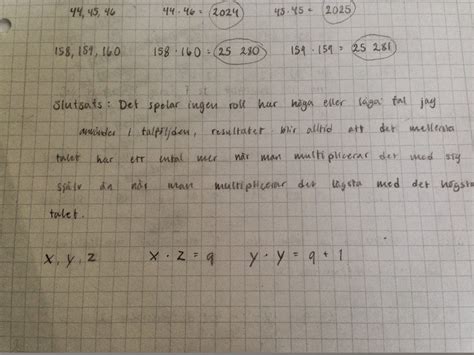 44, 45, 46 44 · 46 = 2024 45 · 45 = 2025
158, 159, 160 158 · 160 = 25 280 159 · 159 = 25 281
Slutsats: Det spelar ingen roll hur höga eller låga tal jag
använder i talföljden, resultatet blir alltid att det mellersta
talet har ett ental mer när man multiplicerar det med sig
själv än när man multiplicerar det lägsta med det högsta
talet.
x, y, z x · z = q y · y = q + 1